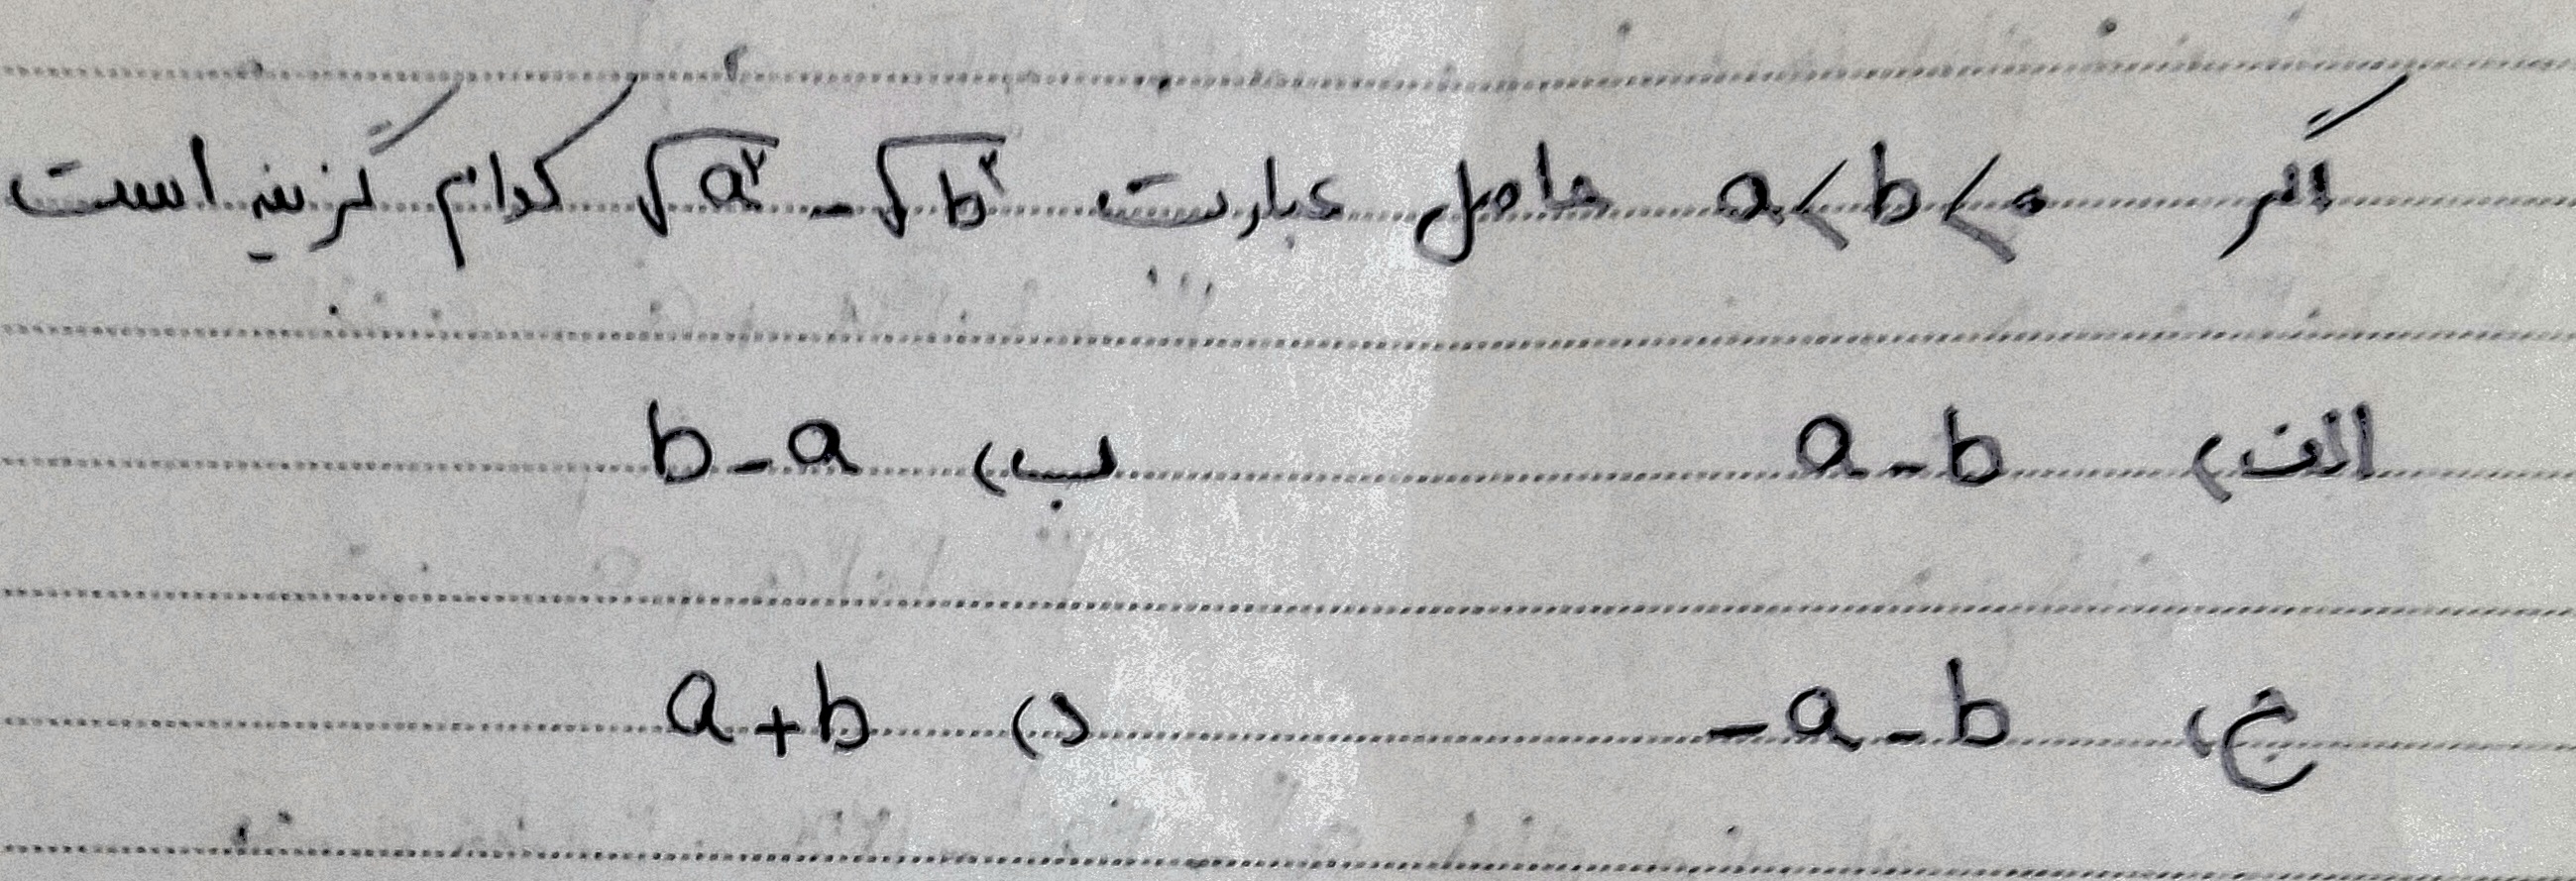 اگر a<b<۰ حاصل عبارت √a۲ - √b۲ کدام گزینه است
الف) a-b ب) b-a
ج) -a-b د) a+b